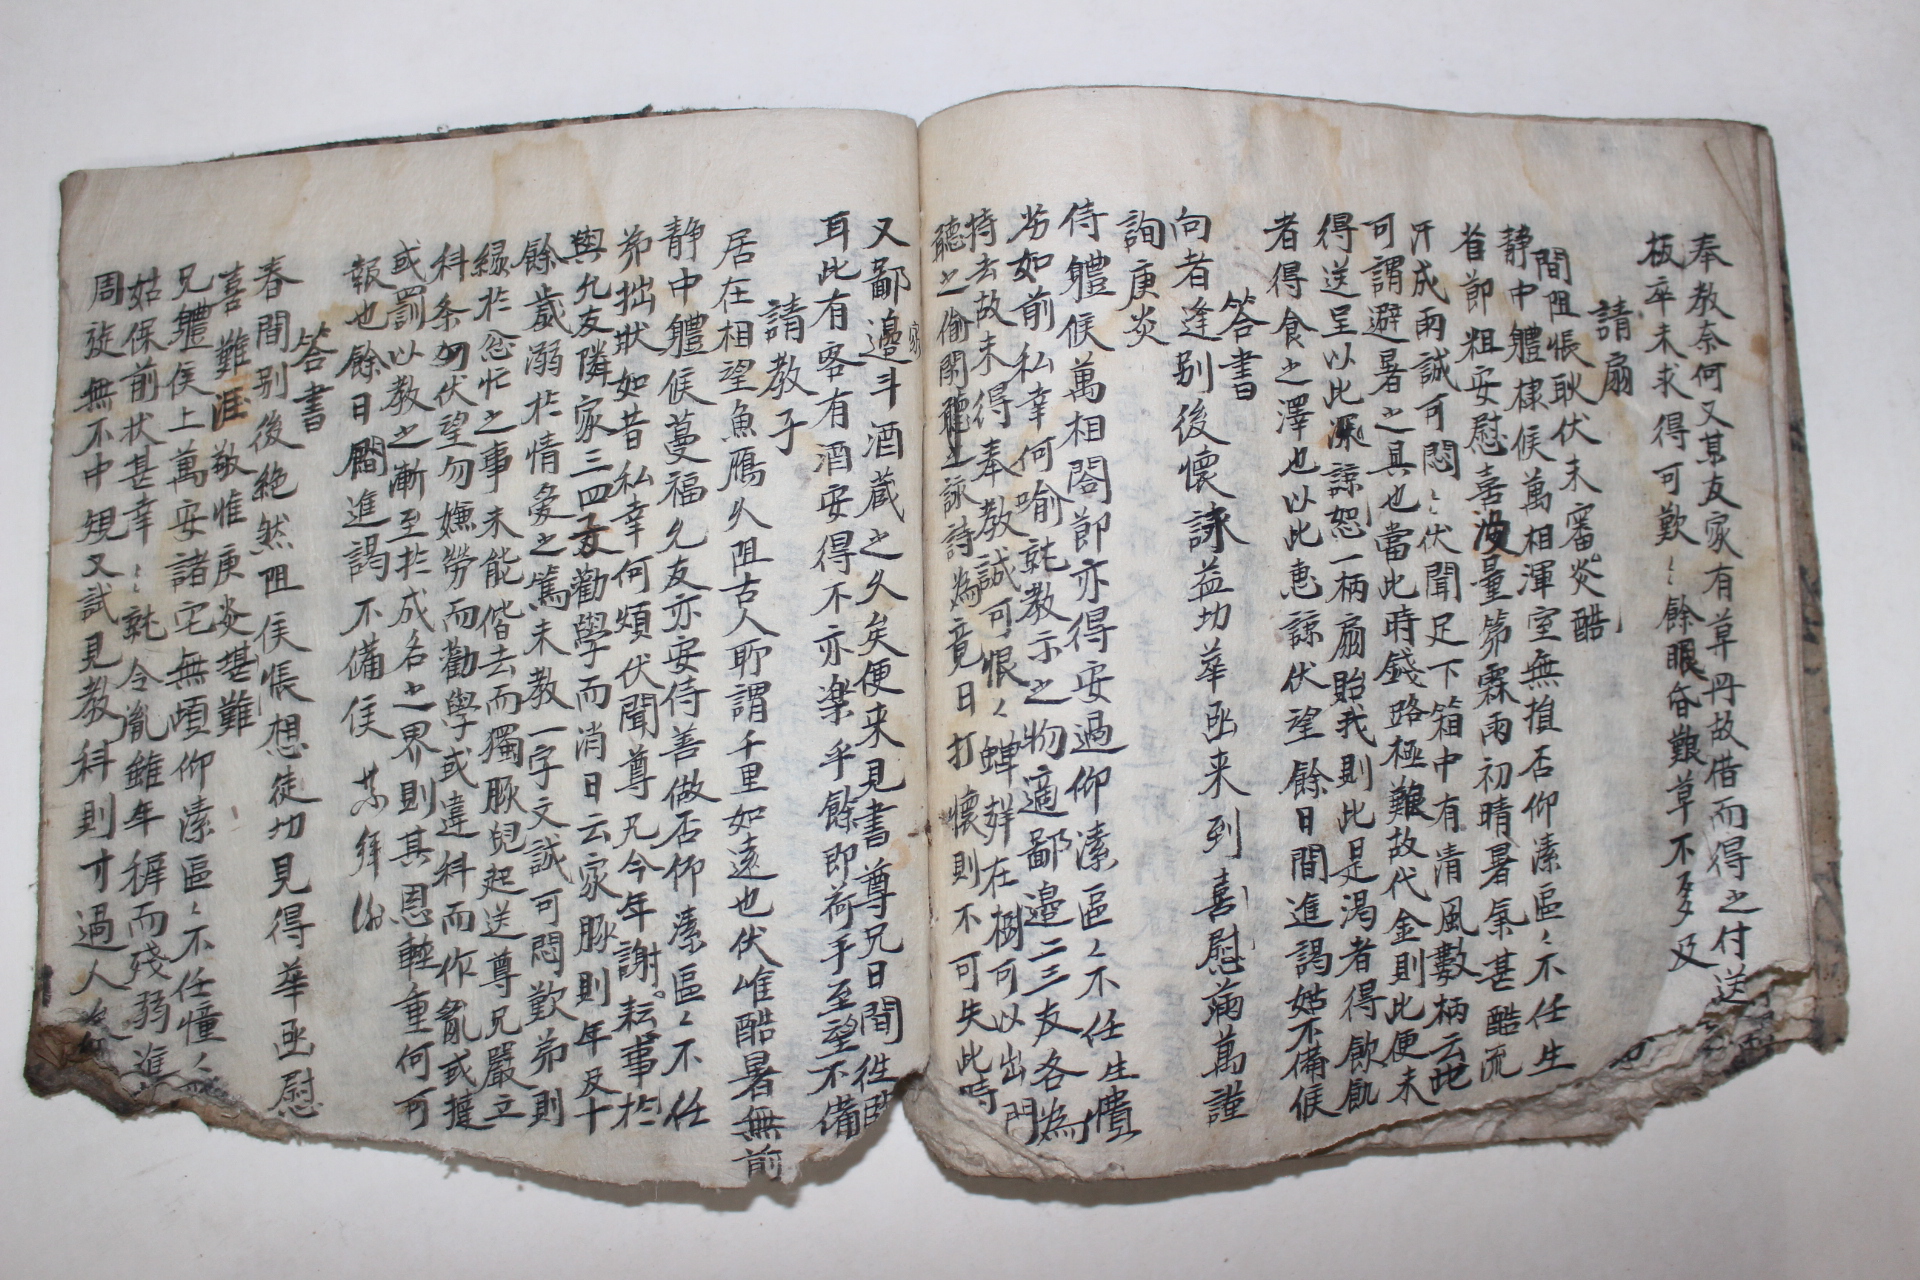 奉教奈何又某友家有草冊故借而得之付送
板卒未求得可歎〻餘眼昏艱草不多及
請扇
間阻悵耿伏未審炎酷
静中體棣候萬相渾室無損否仰溸區〻不任生
省節粗安慰喜没量弟霖雨初晴暑氣甚酷流
汗成雨誠可悶〻伏聞足下箱中有清風數柄云此
可謂避暑之具也當此時錢路極難故代金則此便未
得送呈以此深諒恕一柄扇貽我則此是渴者得飲飢
者得食之澤也以此恵諒伏望餘日間進謁姑不備候
答書
向者逢別後懷詠益切華函来到喜慰萬萬謹
詢庚炎
侍體候萬相閤節亦得安過仰溸區〻不任生憒
弟如前私幸何喻就教示之物適鄙邉二三友各為
持去故未得奉教誠可恨〻蝉群在樹可以出門
聽之偷閑聽之詠詩為竟日打懷則不可失此時
又鄙邉家斗酒蔵之久矣便来見書尊兄日間徃臨
耳此有客有酒安得不亦楽乎餘即荷乎至望不備
請教子
居在相望魚鴈久阻古人所謂千里如遠也伏惟酷暑無前
静中體候蔓福允友亦安侍善做否仰溸區〻不任
弟拙状如昔私幸何煩伏聞尊兄今年謝耘事於
與允友隣家三四子勸學而消日云家豚則年及十
餘歲溺於情愛之篤未教一字文誠可悶歎弟則
縁於忩忙之事未能偕去而獨豚兒起送尊兄嚴立
科条勿伏望勿嫵勞而勸學或違科而作亂或撻
或罰以教之漸至於成名之界則其恩輕重何可
報也餘日間進謁不備候
答書
春間別後絶然阻候悵想徒切見得華函慰
喜難涯敬惟庚炎甚難
兄體侯上萬安諸宅無頉仰溸區〻不任憧〻
姑保前状甚幸〻就令胤雖年穉而殘弱進
周旋無不中規又試見教科則才過人